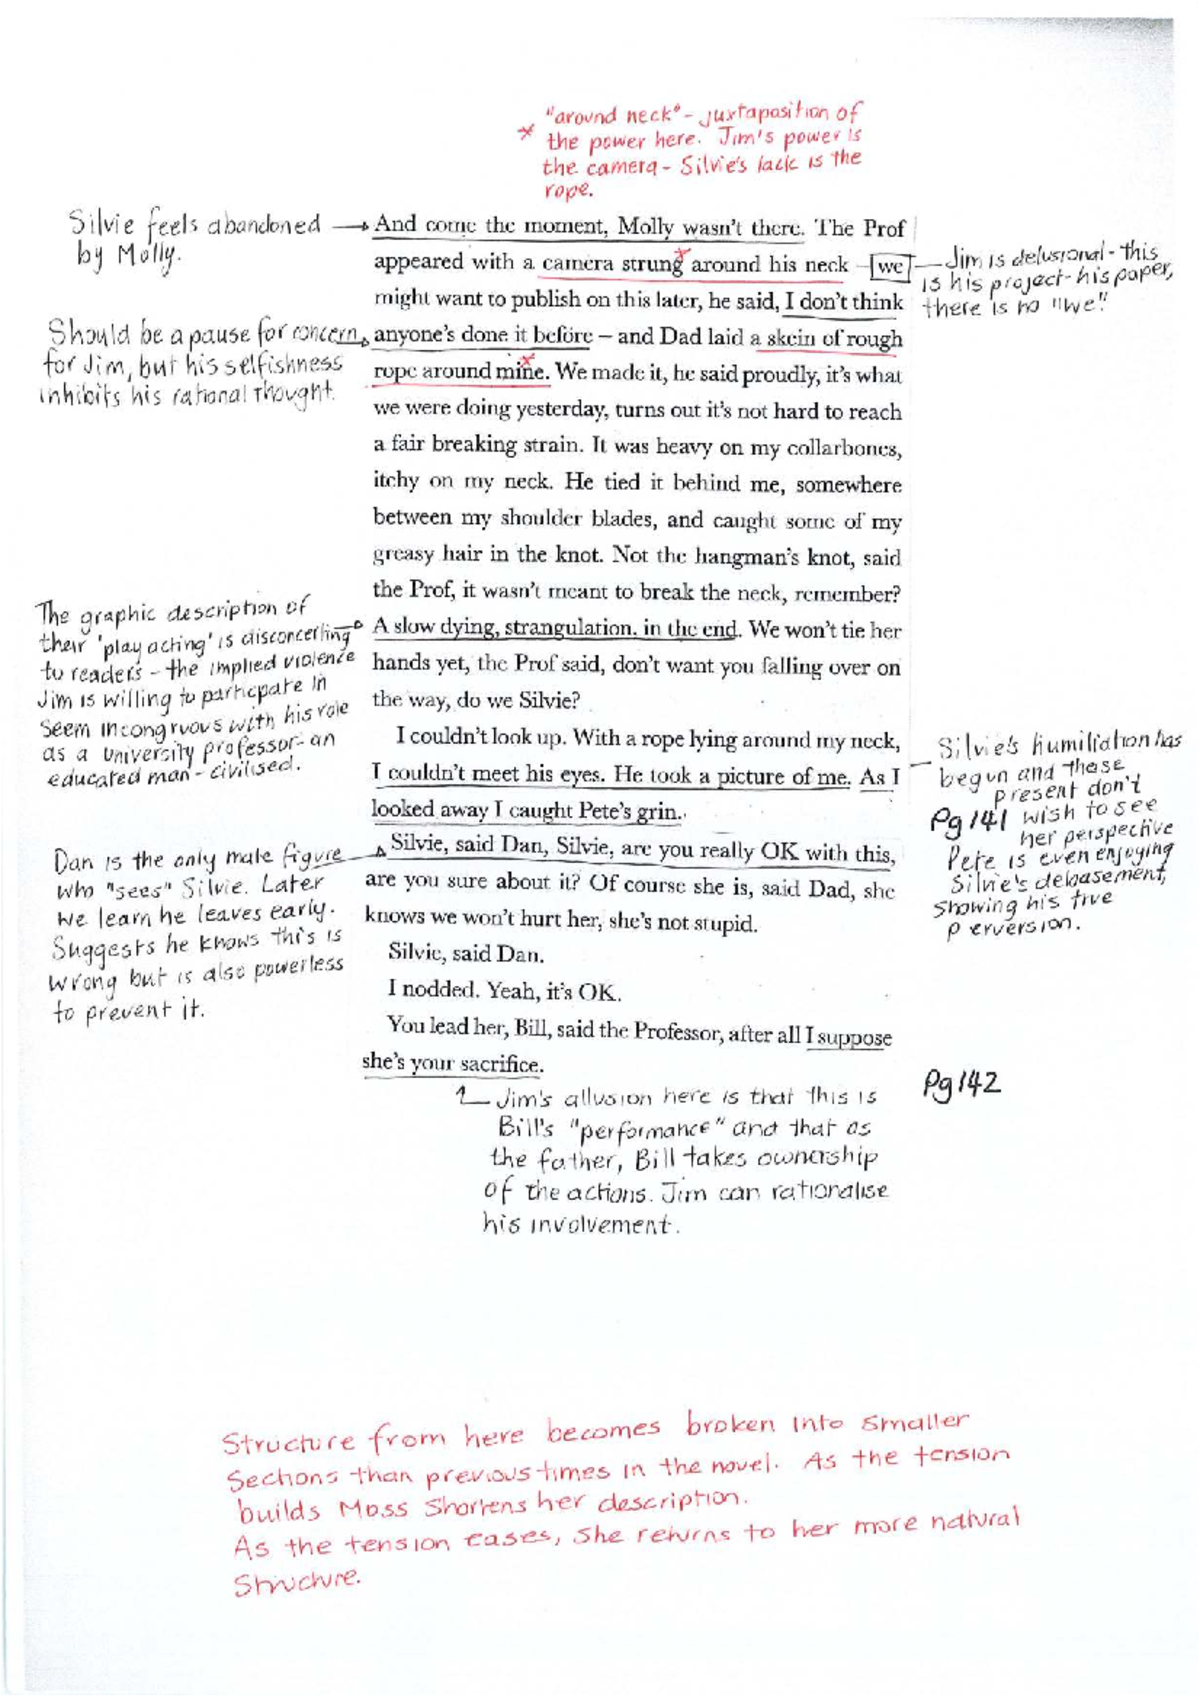 "around neck" - juxtaposition of
* the power here. Jim's power is
the camera - Silvie's lack is the
rope.
Silvie feels abandoned
by Molly.
And come the moment, Molly wasn't there. The Prof
appeared with a camera strung around his neck – we
might want to publish on this later, he said, I don't think
anyone's done it before – and Dad laid a skein of rough
rope around mine. We made it, he said proudly, it's what
we were doing yesterday, turns out it's not hard to reach
a fair breaking strain. It was heavy on my collarbones,
itchy on my neck. He tied it behind me, somewhere
between my shoulder blades, and caught some of my
greasy hair in the knot. Not the hangman's knot, said
the Prof, it wasn't meant to break the neck, remember?
A slow dying, strangulation, in the end. We won't tie her
hands yet, the Prof said, don't want you falling over on
the way, do we Silvie?
I couldn't look up. With a rope lying around my neck,
I couldn't meet his eyes. He took a picture of me. As I
looked away I caught Pete's grin.
Silvie, said Dan, Silvie, are you really OK with this,
are you sure about it? Of course she is, said Dad, she
knows we won't hurt her, she's not stupid.
Silvie, said Dan.
I nodded. Yeah, it's OK.
You lead her, Bill, said the Professor, after all I suppose
she's your sacrifice.
Jim is delusional - this
is his project - his paper,
there is no "we"
Should be a pause for concern
for Jim, but his selfishness
inhibits his rational thought.
The graphic description of
their 'play acting' is disconcerting
to readers - the implied violence
Jim is willing to participate in
seem incongruous with his role
as a university professor - an
educated man - civilised.
Silvie's humiliation has
begun and those
present don't
Pg 141 wish to see
her perspective
Pete is even enjoying
Silvie's debasement,
showing his true
perversion.
Dan is the only male figure
who "sees" Silvie. Later
we learn he leaves early.
Suggests he knows this is
wrong but is also powerless
to prevent it.
Pg 142
Jim's allusion here is that this is
Bill's "performance" and that as
the father, Bill takes ownership
of the actions. Jim can rationalise
his involvement.
Structure from here becomes broken into smaller
sections than previous times in the novel. As the tension
builds Moss shortens her description.
As the tension eases, she returns to her more natural
structure.